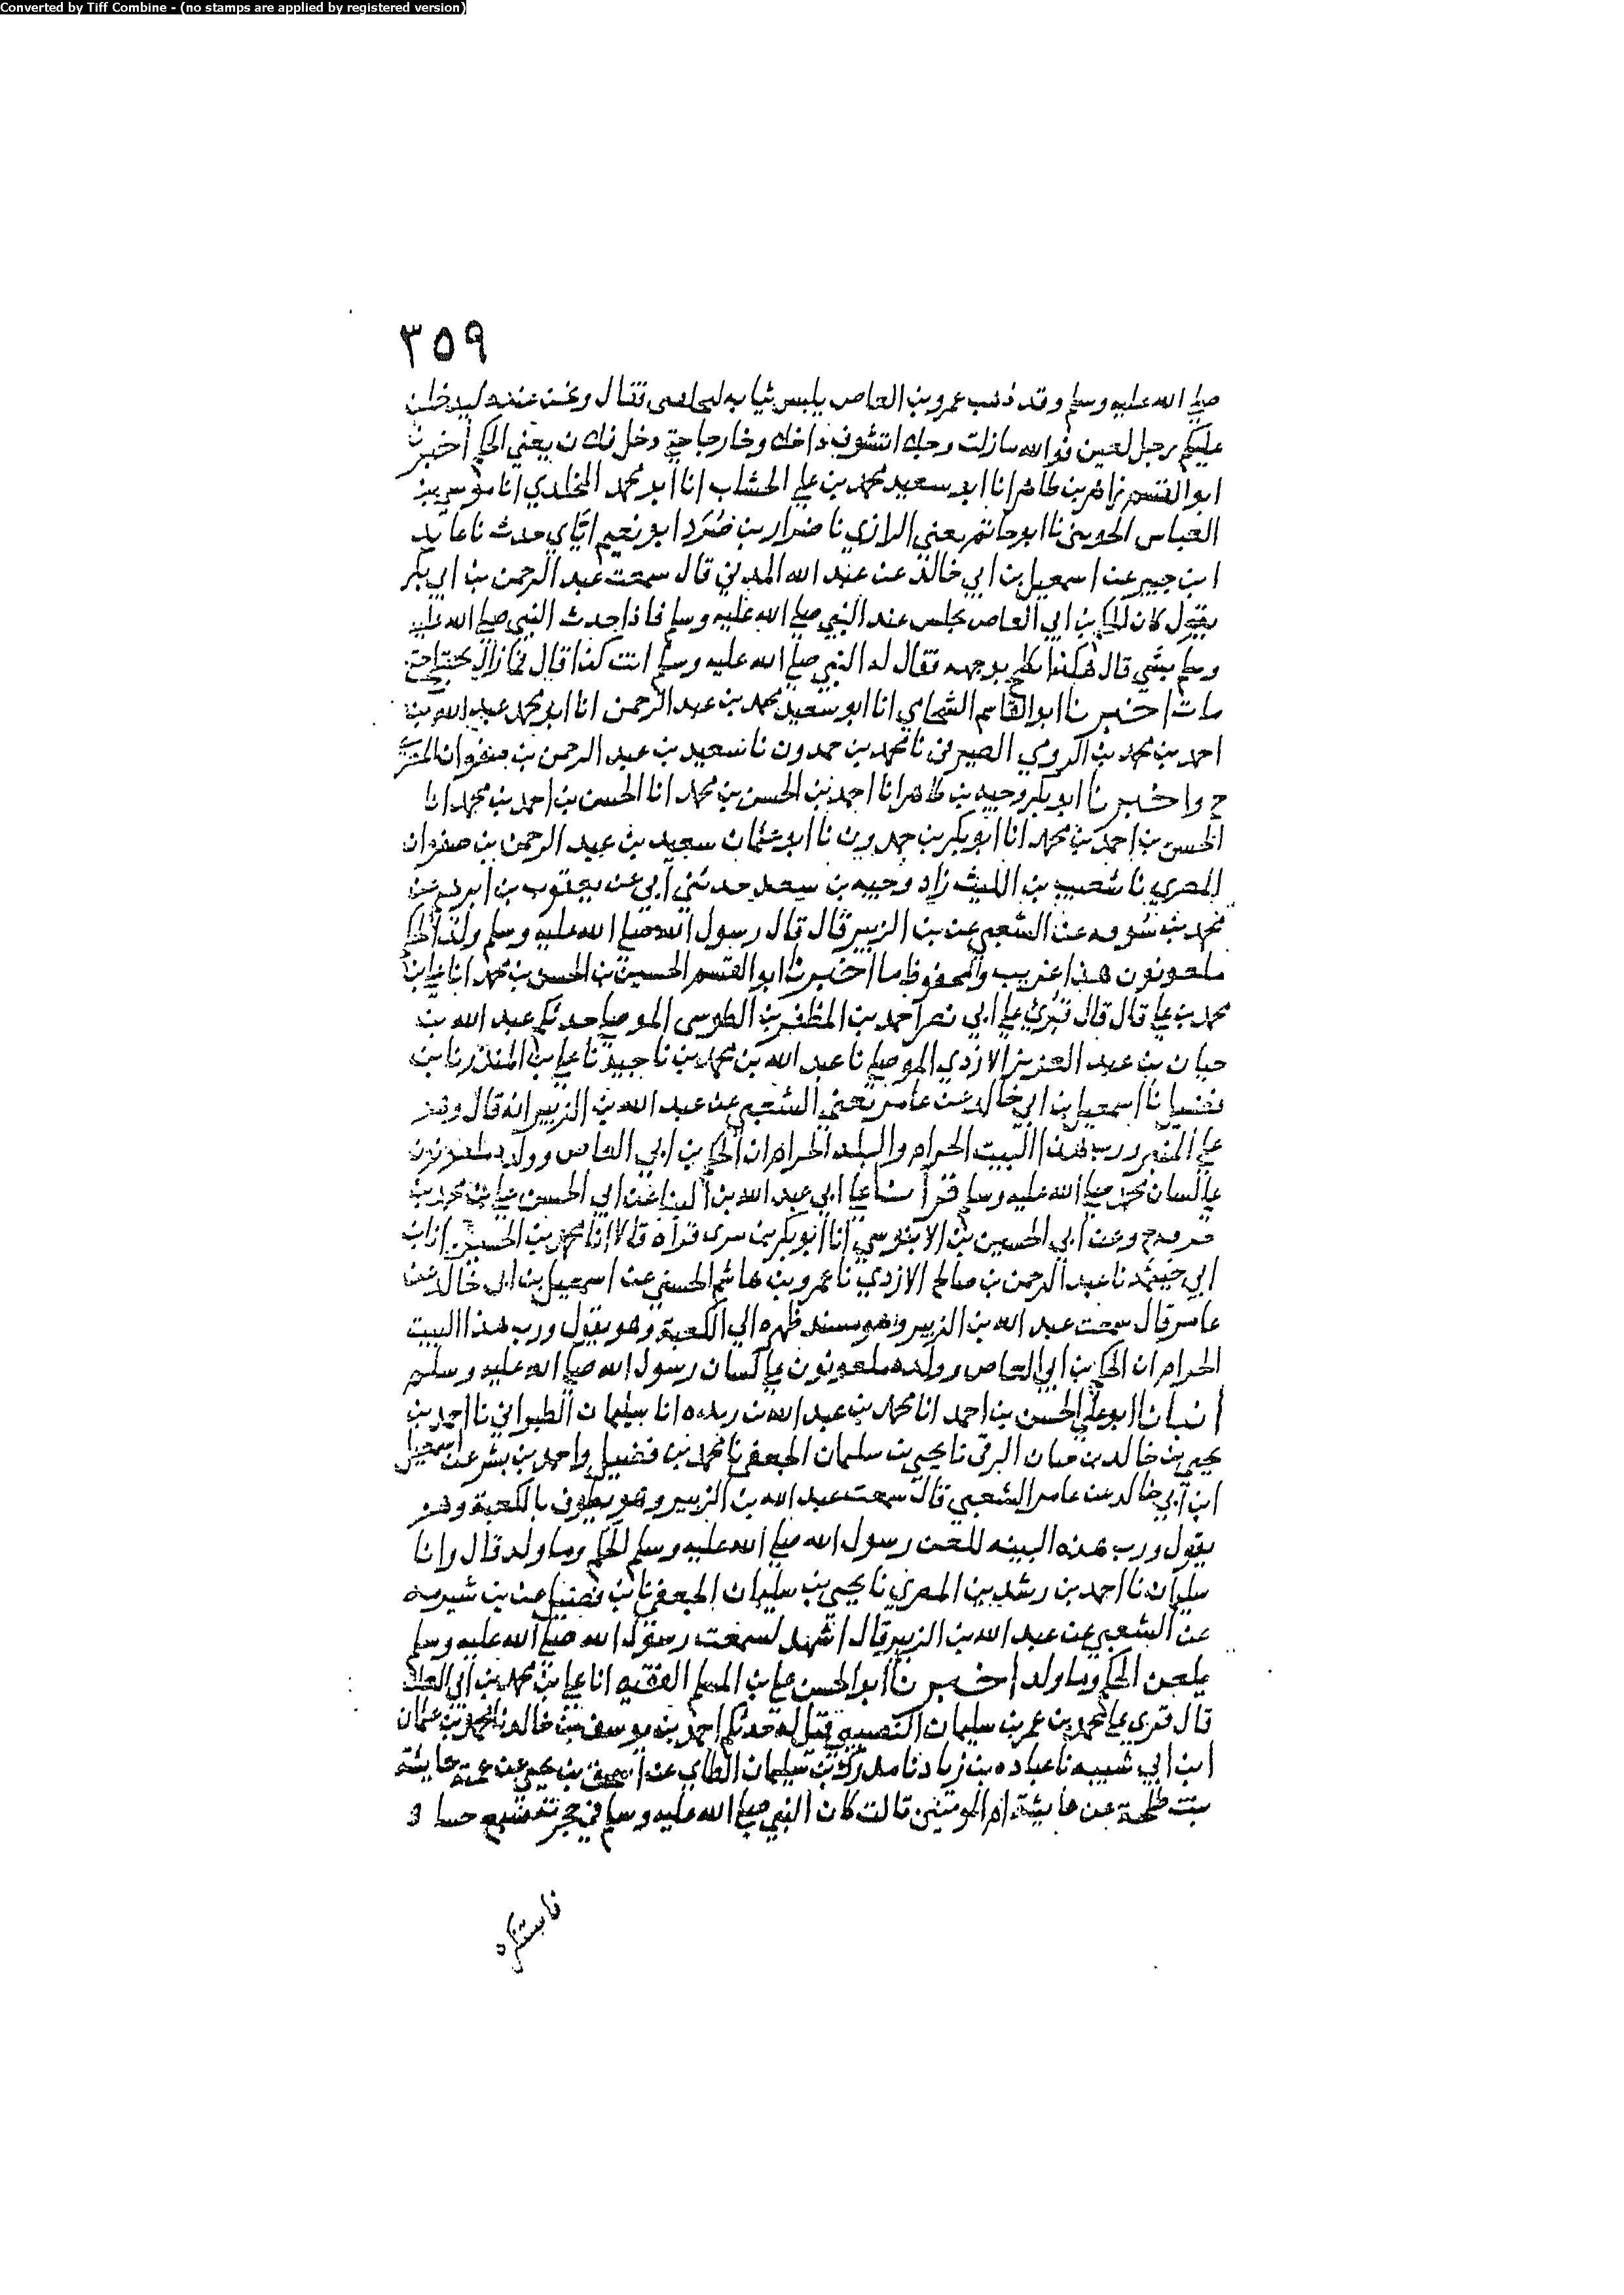 Converted by Tiff Combine - (no stamps are applied by registered version)
٣٥٩
صلى الله عليه وسلم وقد ذهب عمرو بن العاص يلبس ثيابه ليلحقنى فقال ونحن عنده ليدخلن
عليكم رجل لعين فوالله مازلت وجلا اتشوف داخلا وخارجا حتى دخل فلان يعني الحكم أخبرنا
ابو القسم زاهر بن طاهر انا ابو سعيد محمد بن علي الخشاب انا ابو محمد المخلدي انا موسى بن
العباس الجوينى نا ابو حاتم يعني الرازي نا ضرار بن صرد ابو نعيم حدثنا عايد
ابن حبيب عن اسمعيل بن ابي خالد عن عبد الله المديني قال سمعت عبد الرحمن بن ابي بكر
يقول كان الحكم بن ابي العاص يجلس عند النبي صلى الله عليه وسلم فاذا حدث النبي صلى الله عليه
وسلم بشي قال هكذا يكلح بوجهه فقال له النبي صلى الله عليه وسلم انت كذا قال فمازال يختلج حتى
مات اخبرنا ابو القاسم الشحامي انا ابو سعيد محمد بن عبد الرحمن انا ابو محمد عبد الله بن
احمد بن محمد بن الرومي الصيرفى نا محمد بن حمدون نا سعيد بن عبد الرحمن بن صفوان المصري
ح واخبرنا ابو بكر وجيه بن طاهر انا احمد بن الحسن بن محمد انا الحسن بن احمد بن محمد انا
الحسن بن احمد بن محمد انا ابو بكر بن حمدون نا ابو عثمان سعيد بن عبد الرحمن بن صفوان
المصري نا شعيب بن الليث زاد وجيه بن سعد حدثني أبي عن يعقوب بن ابرهيم عن
محمد بن سوقه عن الشعبي عن بن الزبير قال قال رسول الله صلى الله عليه وسلم ولد الحكم
ملعونون هذا غريب والمحفوظ ما اخبرنا ابو القسم الحسين بن الحسن بن محمد انا علي بن
محمد بن علي قال قال قرئ علي ابي نصر أحمد بن المظفر بن الطوسى الموصلي حدثكم عبد الله بن
حيان بن عبد العزيز الازدي الموصلي نا عبد الله بن محمد بن ناجية نا علي بن المنذر نا بن
فضيل نا اسمعيل بن ابي خالد عن عامر يعني الشعبي عن عبد الله بن الزبير انه قال وهو
علي المنبر ورب هذا البيت الحرام والبلد الحرام ان الحكم بن ابي العاص وولده ملعونون
علي لسان محمد صلى الله عليه وسلم قرأت على ابي عبد الله بن البنا عن ابي الحسن علي بن محمد بن
ح وعن أبي الحسين بن الابنوسي انا ابو بكر بن بيرى قراة قالا انا محمد بن الحسين انا بن
ابي خيثمه نا عبد الرحمن بن صالح الازدي نا عمرو بن هاشم الحسني عن اسمعيل بن ابي خالد عن
عامر قال سمعت عبد الله بن الزبير وهو مسند ظهره الي الكعبة وهو يقول ورب هذا البيت
الحرام ان الحكم بن ابي العاص وولده ملعونون علي لسان رسول الله صلى الله عليه وسلم
أنبانا ابو علي الحسن بن احمد انا محمد بن عبد الله بن ريذه انا سليمان الطبراني نا احمد بن
يحيى بن خالد بن حيان الرقي نا يحيى بن سليمان الجعفي نا محمد بن فضيل واحمد بن بشر عن اسمعيل
ابن أبي خالد عن عامر الشعبي قال سمعت عبد الله بن الزبير وهو يطوف بالكعبة وهو
يقول ورب هذه البينه للعن رسول الله صلى الله عليه وسلم الحكم وما ولد قال وانا
سليمان نا احمد بن رشدين المصري نا يحيى بن سليمان الجعفي نا بن فضيل عن بن شبرمه
عن الشعبي عن عبد الله بن الزبير قال اشهد لسمعت رسول الله صلى الله عليه وسلم
يلعن الحكم وما ولد اخبرنا أبو الحسن علي بن المسلم الفقيه انا علي بن محمد بن أبي العلا
قال قرى علي محمد بن عمر بن سليمان النصيبي قيل له حدثكم احمد بن يوسف بن خالد نا محمد بن عثمان
ابن ابي شيبه نا عباده بن زياد نا مدرك بن سليمان الطاي عن اسحق بن يحيى عن عمته عايشة
بنت طلحة عن عايشة ام المومنين قالت كان النبي صلى الله عليه وسلم في حجرته فسمع حسا و
فاستنكره